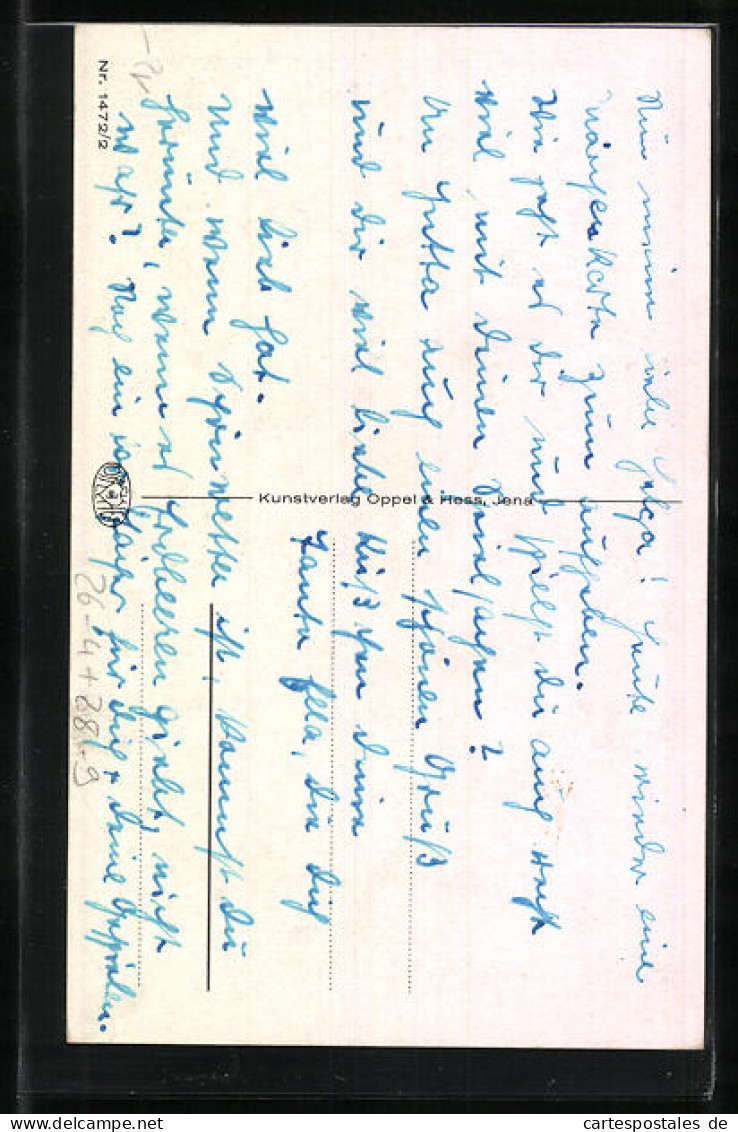 Nun meine liebe Helga! Heute wieder eine
Märchenkarte zum aufheben.
Wie geht es dir und spielst du auch recht
viel mit deinen
An Jutta auch einen schönen Gruß
und dir viel liebe Küße von deiner
Tante Ella, die dich
viel lieb hat.
Und wenn schön Wetter ist, kommst du
herunter, wenn es Erdbeeren giebt, nicht
wahr? Noch ein für dich, deine
Nr. 1472/2
Kunstverlag Oppel & Hess, Jena
26-4+2819
cartespostales de